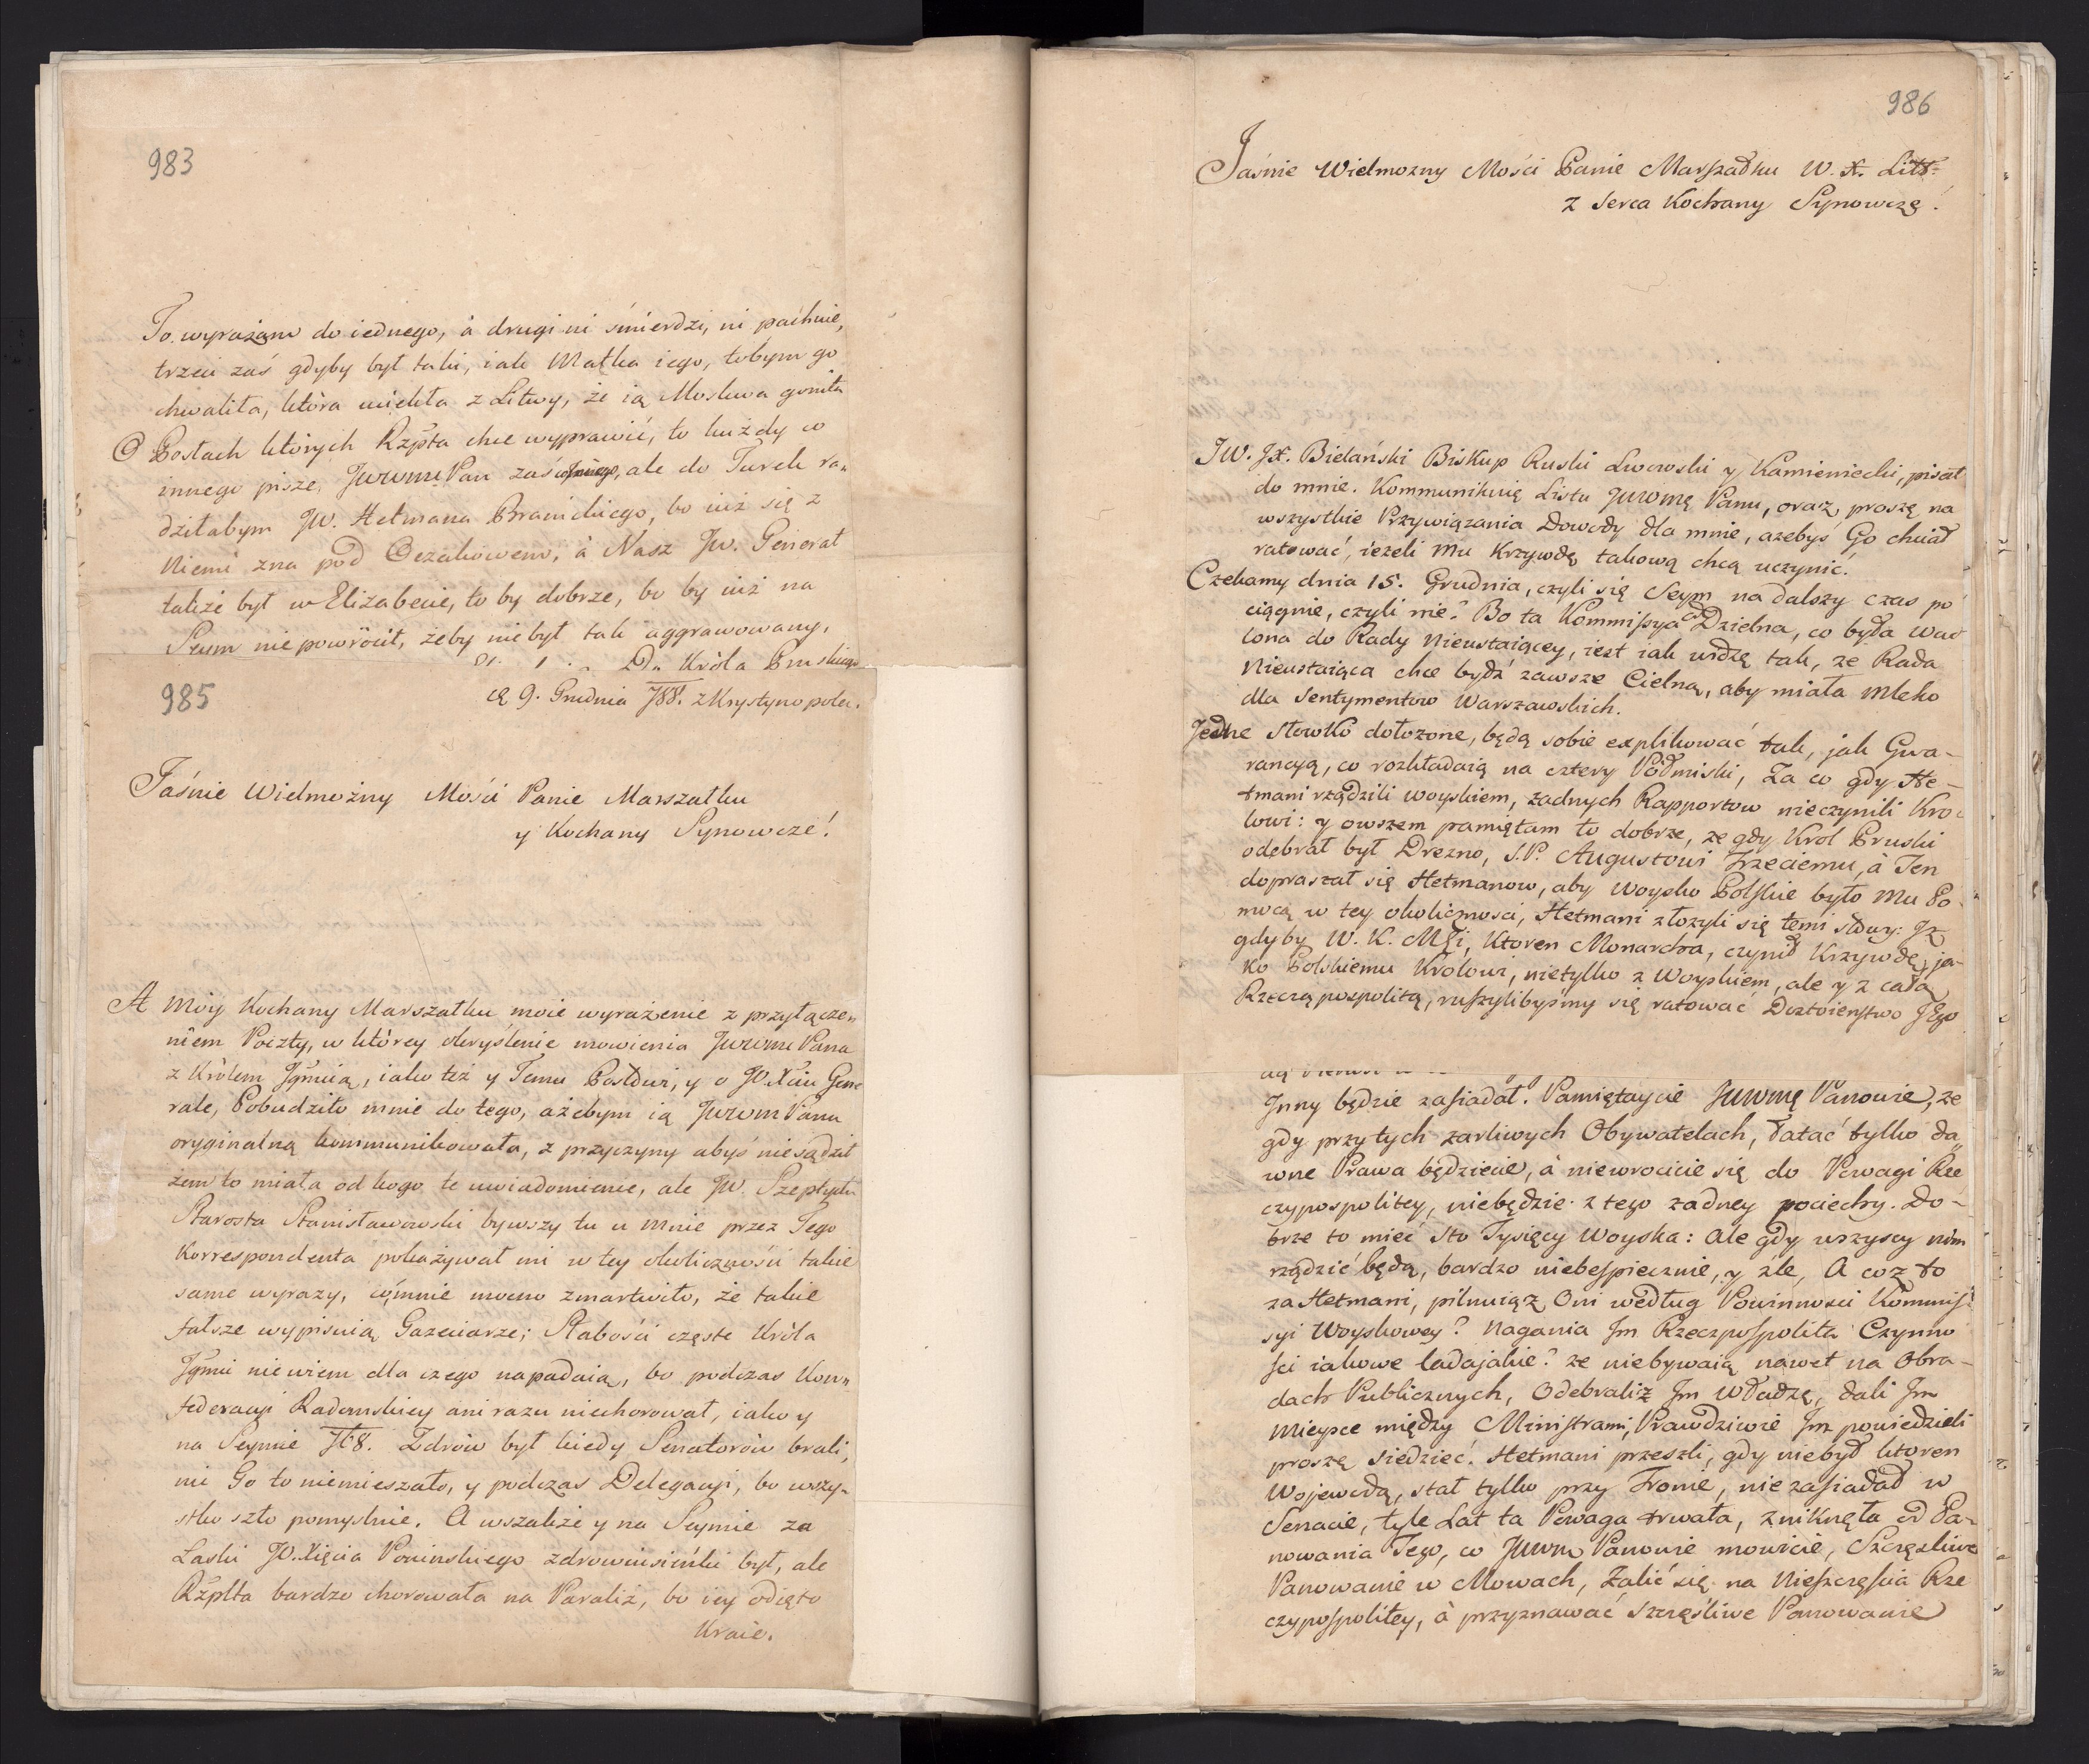 983
To wyrażam do iednego, à drugi ni śmierdzi, ni pachnie,
trzeci zaś gdyby był taki, iak Matka iego, tobym go
chwaliła, która uciekła z Litwy, że ią Moskwa goniła
O Posłach których Rzpta chce wyprawić, to każdy w
innego pisze, JWWMPan zaś innego, ale do Turek ra„
dziłabym JW. Hetmana Branickiego, bo iuż się z
Niemi zna pod Oczakowem, à Nasz JW. Generał
także był w Elizabecie, to by dobrze, bo by iuż na
Seum nie powrócił, żeby nie był tak aggrawowany.
Do Króla Pruskiego
985
9. Grudnia 788. z Krystynopola.
Jaśnie Wielmożny Mości Panie Marszałku
y Kochany Synowcze!
A Moy Kochany Marszałku moie wyrażenie z przyłącze„
niem Poczty, w którey okryślenie mowienia JWWM Pana
z Królem Jgmcią, iako też y Temu Posłowi, y o JO. Xciu Gene
rale, Pobudziło mnie do tego, ażebym ią JWWM Panu
oryginalną kommunikowała, z przyczyny abyś nie sądził
żem to miała od kogo te uwiadomienie, ale JW. Szeptycki
Starosta Stanisławowski bywszy tu u mnie przez Tego
Korrespondenta pokażywał mi w tey okoliczności takie
same wyrazy, co mnie mocno zmartwiło, że takie
fałsze wypisuią Gazeciarze; Słabości częste Króla
Jgmci nie wiem dla czego napadaią, bo podczas Kon„
federacyi Radomskiey ani razu niechorował, iako y
na Seymie 768. Zdrów był kiedy Senatorów brali,
nic Go to niemieszało, y podczas Delegacyi, bo wszy„
stko szło pomyslnie. A wszakże y na Seymie za
Laski JO. Xięcia Ponińskiego zdrowiusieńki był, ale
Rzplta bardzo chorowała na Paraliż, bo iey odięto
Kraie.
986
Jaśnie Wielmozny Mości Panie Marszałku W. X. Litt=
z Serca Kochany Synowczę!
JW. JX. Bielański Biskup Ruski Lwowski y Kamieniecki, pisał
do mnie. Kommunikuię Listu JWWMę Panu, oraz proszę na
wszystkie Przywiązania Dowody dla mnie, azebyś Go chciał
ratować, ieżeli Mu Krzywdę takową chcą uczynić.
Czekamy dnia 15. Grudnia, czyli się Seym na dalszy czas po
ciągnie, czyli nie? Bo ta Kommissya Dzielna, co była wcie
lona do Rady Nieustaiącey, iest iak widzę tak, ze Rada
Nieustaiąca chce bydź zawsze Cielną, aby miała Mleko
dla Sentymentow Warszawskich.
Jedne słowko dołozone, będą sobie explikować tak, jak Gwa-
rancyą, co rozkładaią na cztery Półmiski, Za co gdy He-
tmani rządzili woyskiem, zadnych Rapportow nieczynili Kro-
lowi: y owszem pamiętam to dobrze, ze gdy Krol Pruski
odebrał był Drezno, S.P. Augustowi Trzeciemu, à Ten
dopraszał się Hetmanow, aby Woysko Polskie było Mu Po-
mocą w tey okolicznosci, Hetmani złozyli się temi słowy: Iz
gdyby W. K. Mći, Ktoren Monarcha, czynił Krzywdę, ja-
ko Polskiemu Krolowi, nietylko z Woyskiem, ale y z całą
Rzecząpospolitą, ruszylibyśmy się ratować Dostoienstwo JEgo
Inny będzie zasiadał. Pamiętaycie JWWMę Panowie, ze
gdy przy tych zarliwych Obywatelach, łatać tylko da„
wne Prawa będziecie, à niewrocicie się do Powagi Rze
czypospolitey, niebędzie z tego zadney pociechy. Do-
brze to mieć Sto Tysięcy Woyska: ale gdy wszyscy nim
rządzić będą, bardzo niebespiecznie, y źle, A coz to
za Hetmani, pilnuiąz Oni według Powinnosci Kommis
syi Woyskowey? Nagania Im Rzeczpospolita Czynno
sci iakowe ladajakie? ze niebywaią nawet na Obra-
dach Publicznych, Odebraliz Im Władzę, dali Im
Mieysce między Ministrami, Prawdziwie Im powiedzieli
proszę siedzieć. Hetmani przeszli, gdy niebył ktoren
Wojewodą, stał tylko przy Tronie, nie zasiadał w
Senacie, tyle Lat ta Powaga trwała, zniknęła od Pa-
nowania Tego, co JWWM Panowie mowicie, Szczęśliwe
Panowanie w Mowach, Zalić się na Nieszczęścia Rze
czypospolitey, à przyznawać szczęśliwe Panowanie